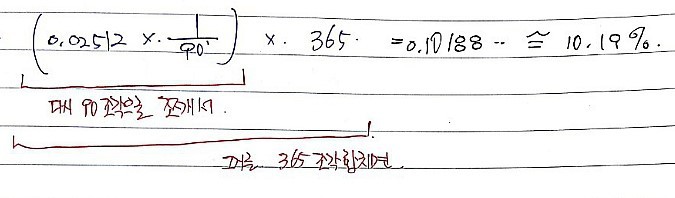 (0.02512 × 1/90) × 365 = 0.10188‥ ≅ 10.19%.
다시 90조각으로 쪼개서.
그거를 365조각합치면.